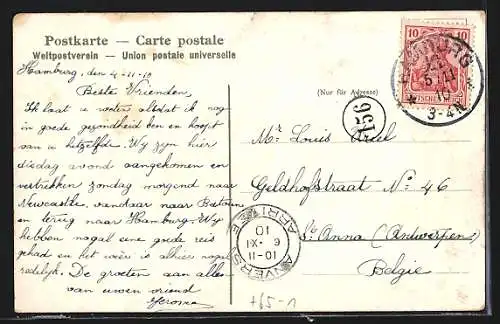 Postkarte – Carte postale
Weltpostverein – Union postale universelle
Hamburg, den 4-11-10
Beste Vrienden,
Ik laat u weten alsdat ik nog
in goede gezondheid ben en hoop
van u hetzelfde. Wij zijn hier
disdag avond aangekomen en
vertrekken zondag morgend naar
Newcastle, vandaar naar
en terug naar Hamburg. Wij
hebben nogal eene goede reis
gehad en het weer is alhier nogal
redelijk. De groeten aan allen
van uwen vriend
Jerome
(Nur für Adresse)
156
10 10
HAMBURG
5.11
10
3-4N
Mr Louis
Geldhofstraat No 46
St Anna (Antwerpen)
Belgie
ANVERS
10-11
6 · XI
10
ARRIVÉE
+65-1